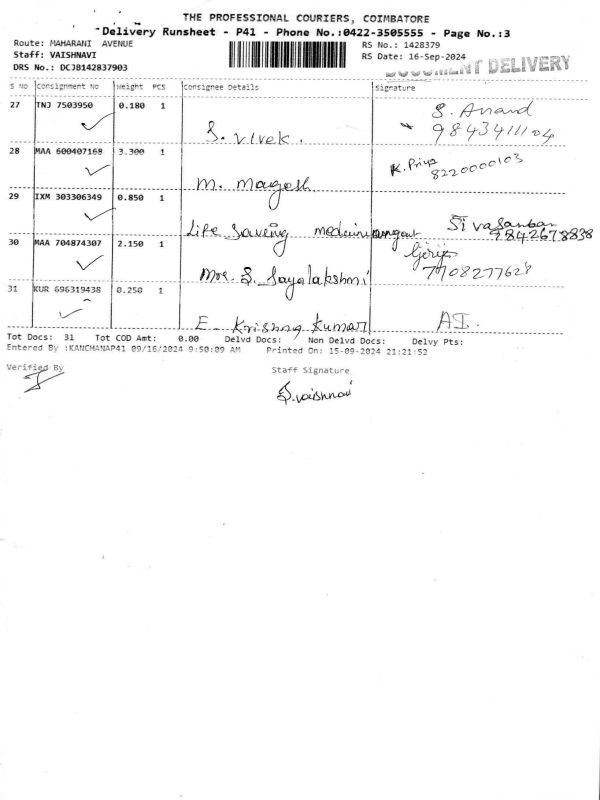 THE PROFESSIONAL COURIERS, COIMBATORE
Delivery Runsheet - P41 - Phone No.:0422-3505555 - Page No.:3
Route: MAHARANI AVENUE
RS No.: 1428379
Staff: VAISHNAVI
RS Date: 16-Sep-2024
DRS No.: DCJB142837903
DOCUMENT DELIVERY
S No Consignment No Weight PCS Consignee Details Signature
27 TNJ 7503950 0.180 1
S. Anand
9843411104
S. Vivek.
28 MAA 600407168 3.300 1
K. Priya
8220000103
M. Magesh
29 IXM 303306349 0.850 1
Life Saveing
Sivasankar
9842678838
30 MAA 704874307 2.150 1
7708277628
Mrs. S. Jayalakshmi
31 KUR 696319438 0.250 1
E. Krishna Kumari
Tot Docs: 31 Tot COD Amt: 0.00 Delvd Docs: Non Delvd Docs: Delvy Pts:
Entered By :KANCHANAP41 09/16/2024 9:50:09 AM Printed On: 15-09-2024 21:21:52
Verified By
Staff Signature
S. Vaishnavi